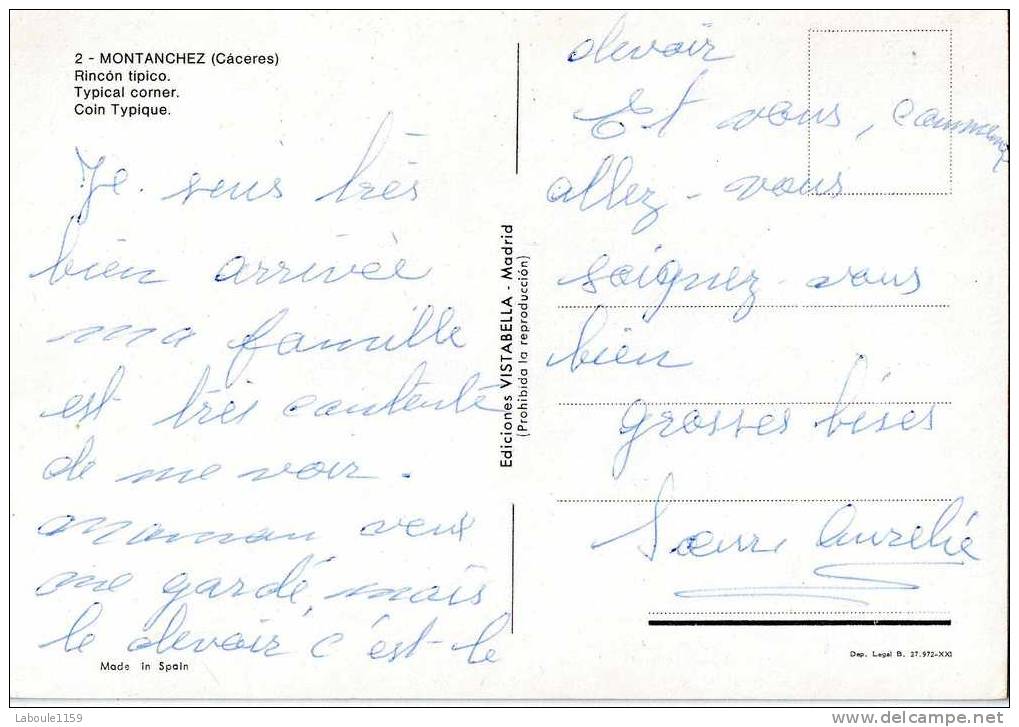 2 - MONTANCHEZ (Cáceres)
Rincón típico.
Typical corner.
Coin Typique.
Je suis très
bien arrivée
ma famille
est très contente
de me voir.
Maman veux
me gardé, mais
le devoir c'est le
Made in Spain
Ediciones VISTABELLA - Madrid
(Prohibida la reproducción)
devoir
Et vous, comment
allez-vous
soignez-vous
bien
grosses bises
Sœur Aurélie
Dep. Legal B. 27.972-XXI
Laboule1159
delcampe.net